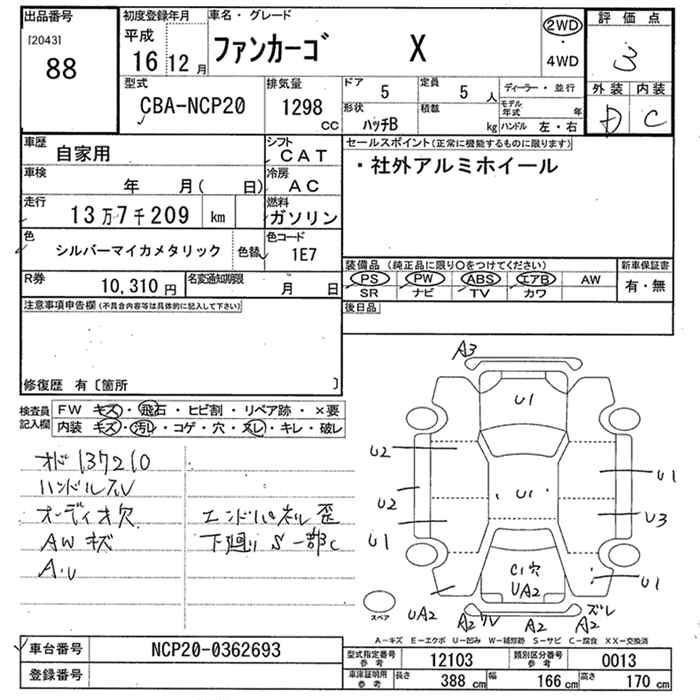 出品番号
[2043]
88
初度登録年月
平成
16 12 月
車名・グレード
ファンカーゴ X
2WD
・
4WD
評価点
3
外装 内装
D C
型式
CBA-NCP20
排気量
1298
cc
ドア
5
定員
5 人
ディーラー・並行
形状
ハッチB
積載
kg
モデル年式 年
ハンドル 左・右
車歴
自家用
シフト
CAT
車検
年 月( 日)
冷房
AC
走行
13万7千209 km
燃料
ガソリン
色
シルバーマイカメタリック
色替
色コード
1E7
R券
10,310 円
名変通知期限
月 日
セールスポイント(正常に機能するものに限ります)
・社外アルミホイール
装備品 (純正品に限り○をつけてください)
新車保証書
PS PW ABS エアB AW
有・無
SR ナビ TV カワ
後日品
注意事項申告欄(不具合内容等は具体的に記入して下さい)
修復歴 有〔箇所 〕
検査員
記入欄
FW キズ・飛石・ヒビ割・リペア跡・×要
内装 キズ・汚レ・コゲ・穴・スレ・キレ・破レ
オド 137210
ハンドルスレ
オーディオ欠
AWキズ
A.U
エンドパネル歪
下廻りS一部C
A3
U1
U2
U1
U2
U1
U3
U1
U1
C1穴
UA2
UA2
A2
A2
ズレ
A2
スペア
A−キズ E−エクボ U−凹み W−補修跡 S−サビ C−腐食 XX−交換済
車台番号
NCP20-0362693
登録番号
型式指定番号
参考
12103
類別区分番号
参考
0013
車庫証明用
参考
長さ
388 cm
幅
166 cm
高さ
170 cm